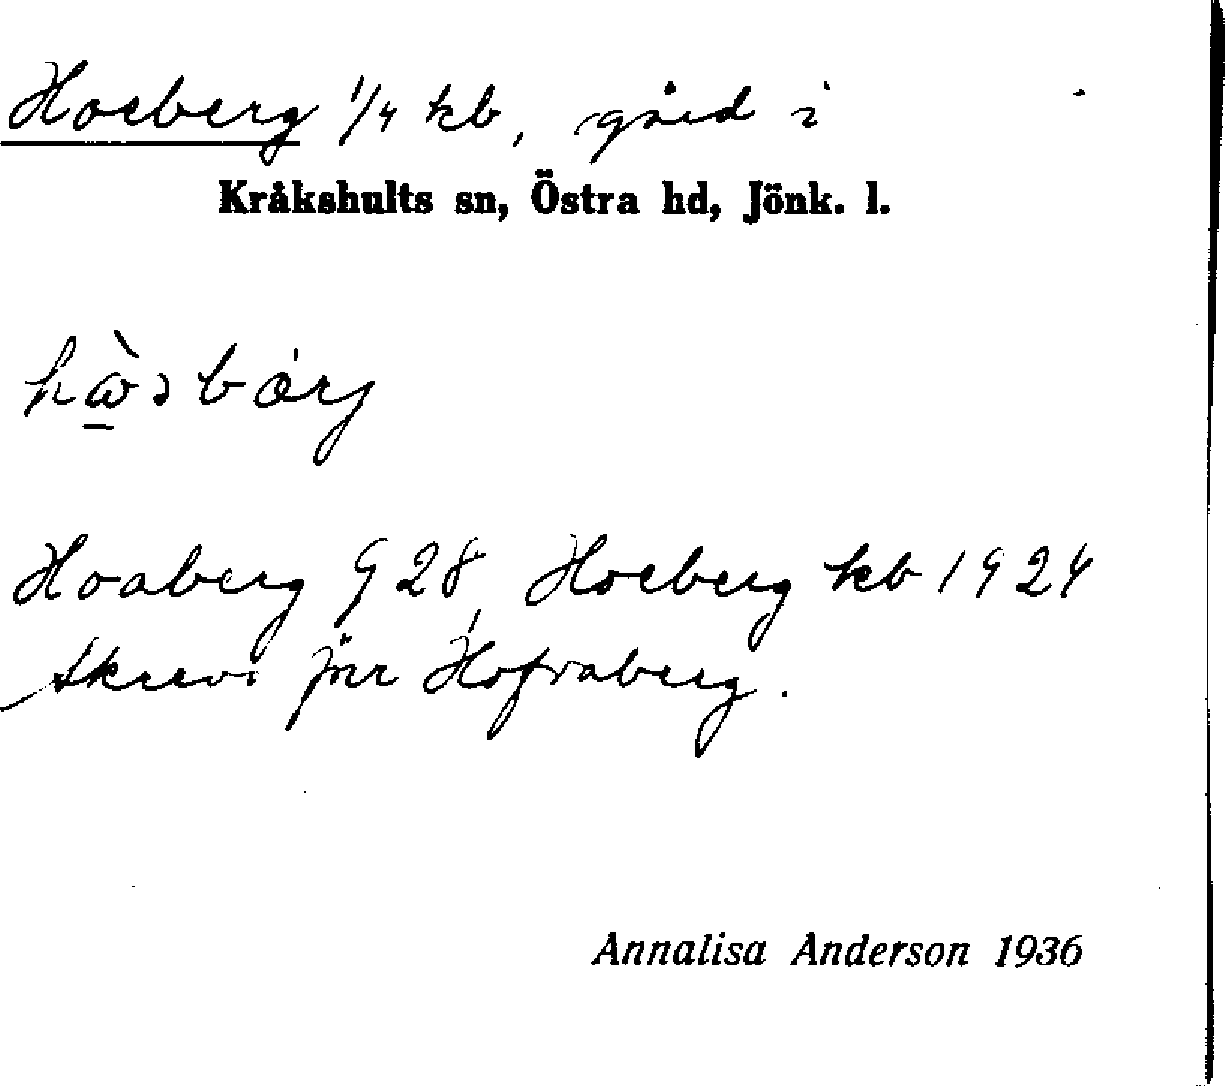 Hoeberg 1/4 kb, gård i
Kråkshults sn, Östra hd, Jönk. l.
Hoaberg G 28, Hoeberg kb 1924
skrevs förr Hofvaberg.
Annalisa Anderson 1936